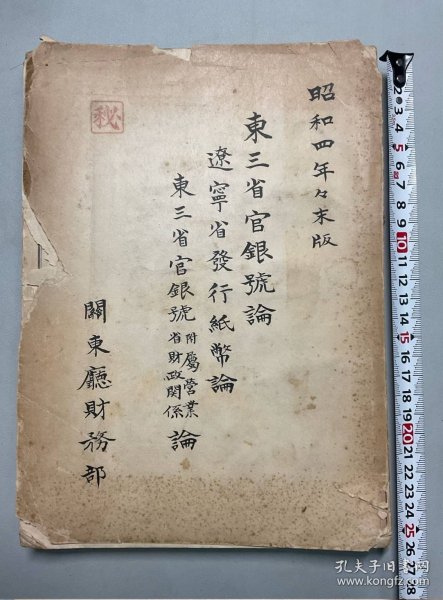 昭和四年々末版
東三省官銀號論
遼寧省發行紙幣論
東三省官銀號附屬營業省財政関係論
関東廳財務部
秘
2
3
4
5
6
7
8
9
10
11
12
13
14
15
16
17
18
19
20
21
22
23
24
25
26
27
28
孔夫子旧书网
www.kongfz.com